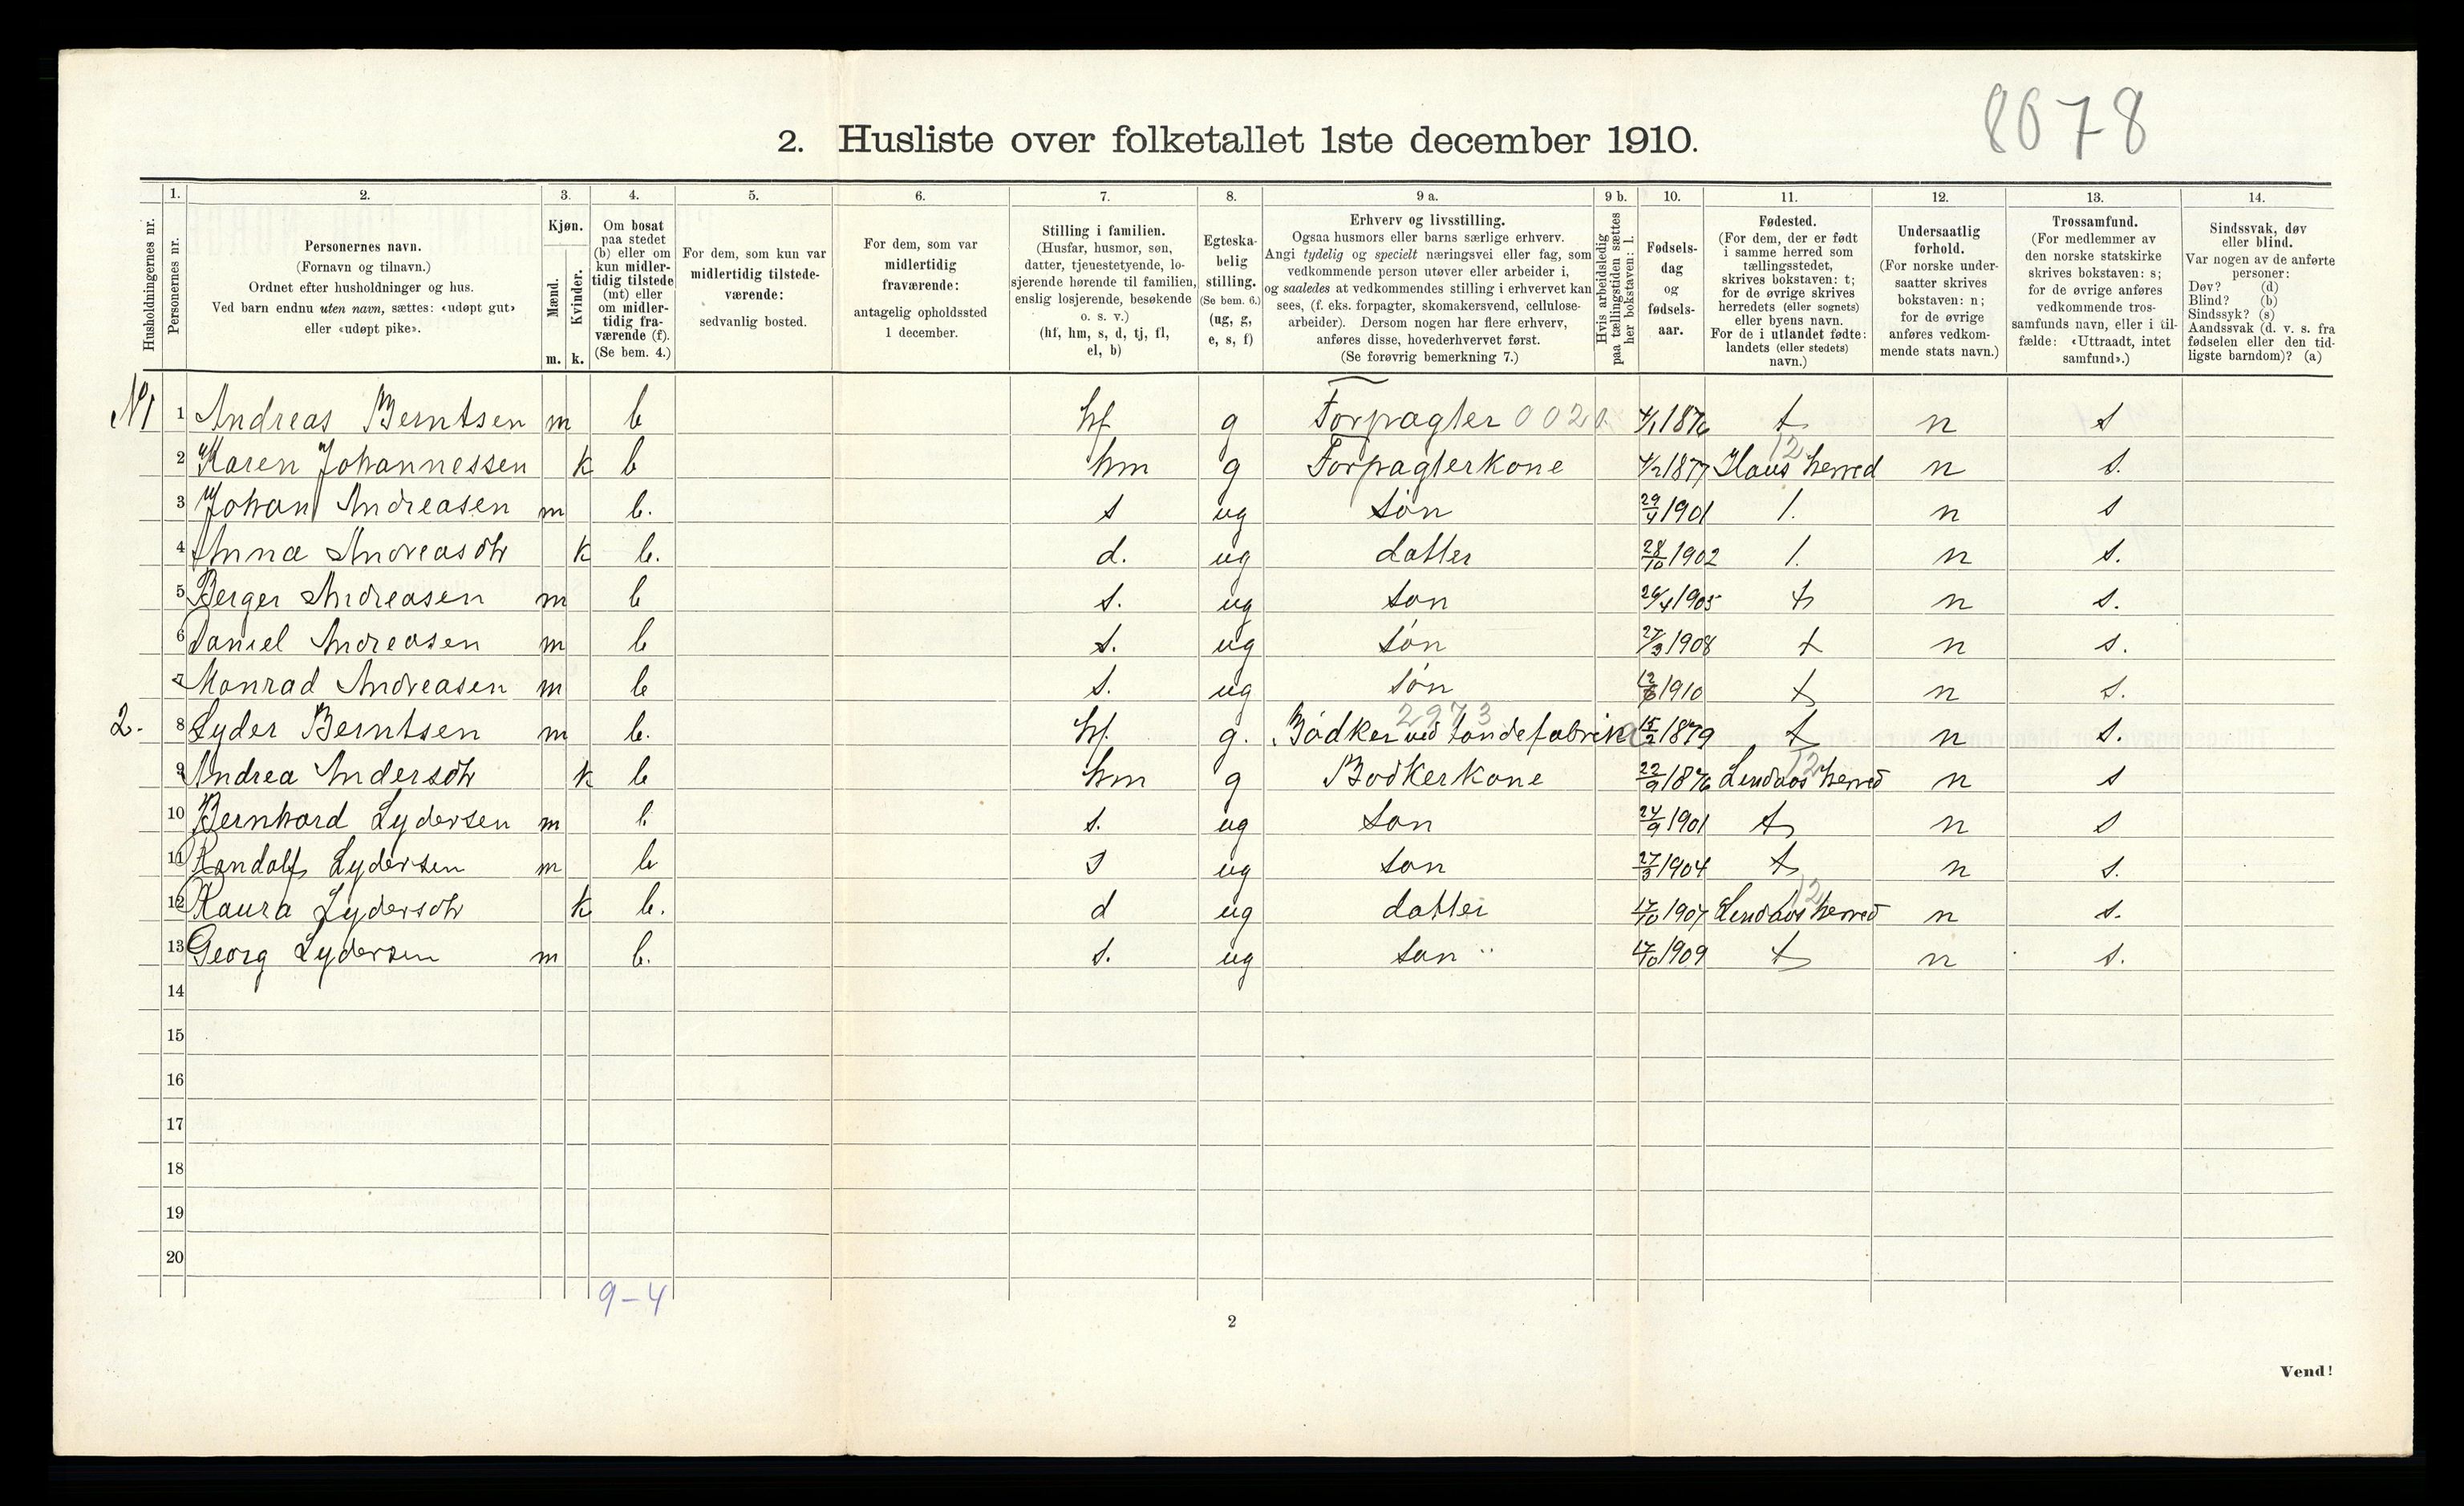 8078
2. Husliste over folketallet 1ste december 1910.
1. 2. 3. 4. 5. 6. 7. 8. 9 a. 9 b. 10. 11. 12. 13. 14.
Husholdningernes nr.
Personernes nr.
Personernes navn.
(Fornavn og tilnavn.)
Ordnet efter husholdninger og hus.
Ved barn endnu uten navn, sættes: «udøpt gut»
eller «udøpt pike».
Kjøn.
Mænd.
Kvinder.
m. k.
Om bosat
paa stedet
(b) eller om
kun midler-
tidig tilstede
(mt) eller
om midler-
tidig fra-
værende (f).
(Se bem. 4.)
For dem, som kun var
midlertidig tilstede-
værende:
sedvanlig bosted.
For dem, som var
midlertidig
fraværende:
antagelig opholdssted
1 december.
Stilling i familien.
(Husfar, husmor, søn,
datter, tjenestetyende, lo-
sjerende hørende til familien,
enslig losjerende, besøkende
o. s. v.)
(hf, hm, s, d, tj, fl,
el, b)
Egteska-
belig
stilling.
(Se bem. 6.)
(ug, g,
e, s, f)
Erhverv og livsstilling.
Ogsaa husmors eller barns særlige erhverv.
Angi tydelig og specielt næringsvei eller fag, som
vedkommende person utøver eller arbeider i,
og saaledes at vedkommendes stilling i erhvervet kan
sees, (f. eks. forpagter, skomakersvend, cellulose-
arbeider). Dersom nogen har flere erhverv,
anføres disse, hovederhvervet først.
(Se forøvrig bemerkning 7.)
Hvis arbeidsledig
paa tællingstiden sættes
her bokstaven: l.
Fødsels-
dag
og
fødsels-
aar.
Fødested.
(For dem, der er født
i samme herred som
tællingsstedet,
skrives bokstaven: t;
for de øvrige skrives
herredets (eller sognets)
eller byens navn.
For de i utlandet fødte:
landets (eller stedets)
navn.)
Undersaatlig
forhold.
(For norske under-
saatter skrives
bokstaven: n;
for de øvrige
anføres vedkom-
mende stats navn.)
Trossamfund.
(For medlemmer av
den norske statskirke
skrives bokstaven: s;
for de øvrige anføres
vedkommende tros-
samfunds navn, eller i til-
fælde: «Uttraadt, intet
samfund».)
Sindssvak, døv
eller blind.
Var nogen av de anførte
personer:
Døv? (d)
Blind? (b)
Sindssyk? (s)
Aandssvak (d. v. s. fra
fødselen eller den tid-
ligste barndom)? (a)
N1 1 Andreas Berntsen m b hf g Forpagter 0020 4/1 1876 t n s
2 Karen Johannessen k b hm g Forpagterkone 4/2 1877 Haus herred 12 n s.
3 Johan Andreasen m b. s ug søn 29/4 1901 1. n s
4 Anna Andreasdtr k b. d. ug datter 28/10 1902 1. n s.
5 Berger Andreasen m b s. ug søn 26/4 1905 t n s.
6 Daniel Andreasen m b s. ug søn 27/3 1908 t n s.
7 Monrad Andreasen m b s. ug søn 12/6 1910 t n s.
2. 8 Lyder Berntsen m b. hf g. Bødker ved tøndefabrik 2973 15/2 1879 t n s.
9 Andrea Andersdtr k b hm g Bødkerkone 22/9 1876 Lindaas herred 12 n s
10 Bernhard Lydersen m b s. ug søn 24/9 1901 t n s
11 Randolf Lydersen m b s ug søn 27/3 1904 t n s.
12 Laura Lydersdtr k b. d ug datter 17/10 1907 Lindaas herred 12 n s.
13 Georg Lydersen m b. s. ug søn 17/10 1909 t n s.
14
15
16
17
18
19
20
9-4
2
Vend!